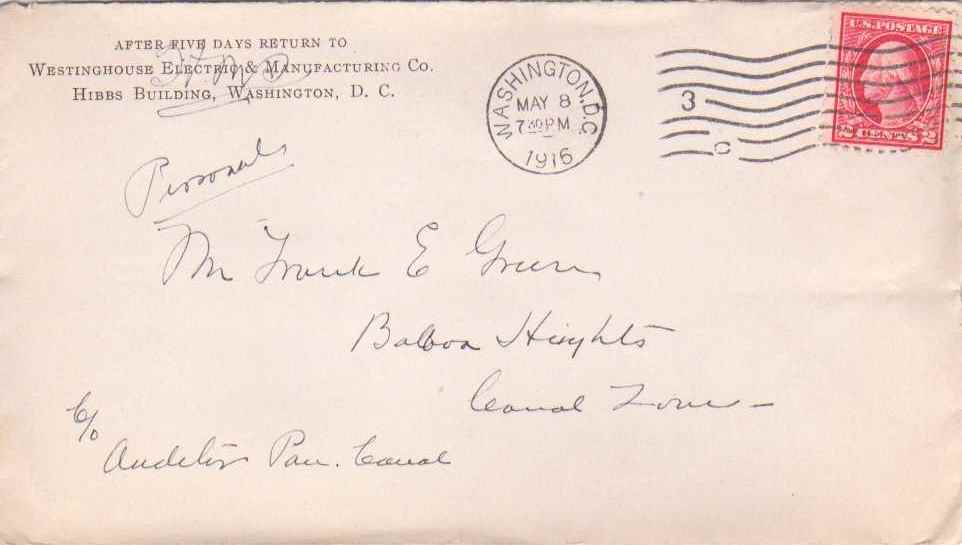 AFTER FIVE DAYS RETURN TO
WESTINGHOUSE ELECTRIC & MANUFACTURING CO.
HIBBS BUILDING, WASHINGTON, D. C.
WASHINGTON, D.C.
MAY 8
7 30 PM
1916
3
C
U.S. POSTAGE
2 CENTS 2
Personal
Mr Frank E Green
Balboa Heights
Canal Zone
c/o
Auditor Pan. Canal